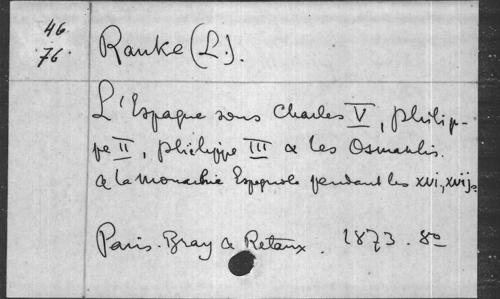 46
76
Ranke (L.).
L'Espagne sous Charles V, Philip-
pe II, Philippe III & les Osmanlis.
& la monarchie Espagnole pendant les xvi, xvije
Paris. Bray & Retaux. 1873. 8o